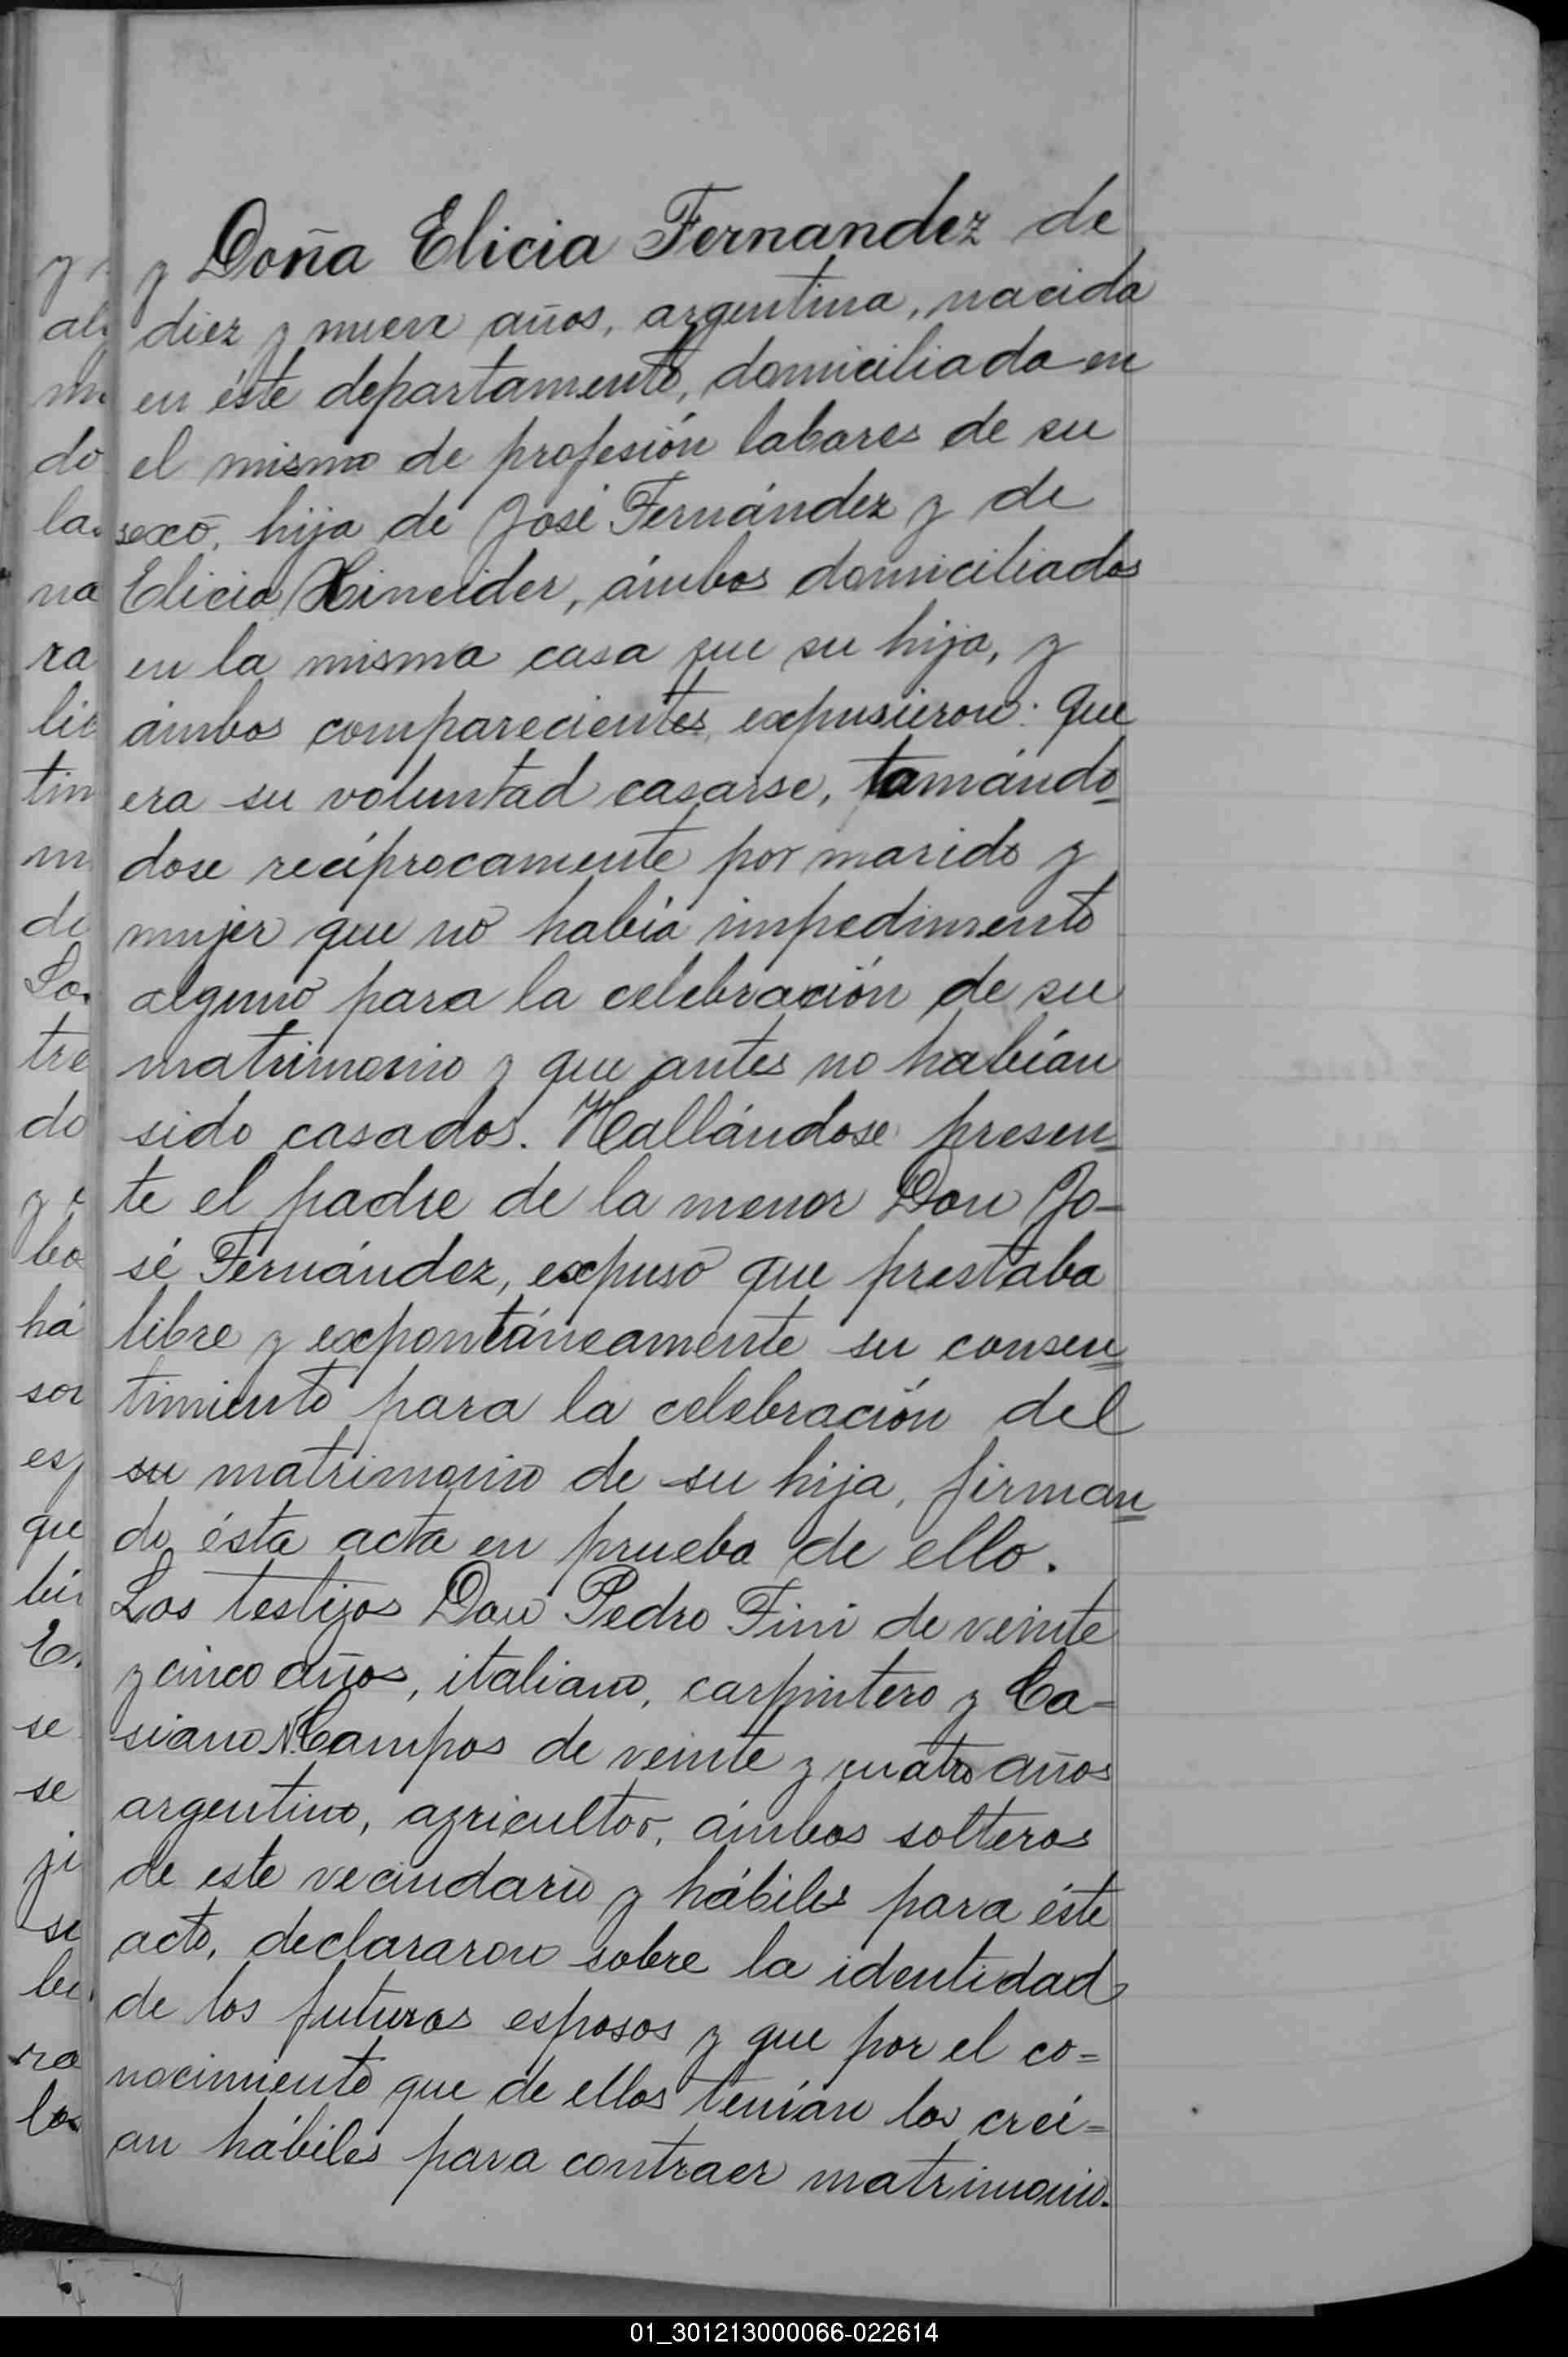 y Doña Elicia Fernandez de
diez y nueve años, argentina, nacida
en éste departamento, domiciliada en
el mismo de profesión labores de su
sexo, hija de José Fernández y de
Elicia Xineider, ámbos domiciliados
en la misma casa que su hija, y
ámbos comparecientes expusieron: que
era su voluntad casarse, tomándo-
dose recíprocamente por marido y
mujer que no había impedimento
alguno para la celebración de su
matrimonio y que antes no habían
sido casados. Hallándose presen-
te el padre de la menor Don Jo-
sé Fernández, expuso que prestaba
libre y expontáneamente su consen=
timiento para la celebración del
su matrimonio de su hija, firman=
do ésta acta en prueba de ello.
Los testigos Don Pedro Fini de veinte
y cinco años, italiano, carpintero y Ca-
siano N. Campos de veinte y cuatro años
argentino, agricultor, ámbos solteros
de este vecindario y hábiles para éste
acto, declararon sobre la identidad
de los futuros esposos y que por el co=
nocimiento que de ellos tenían los creí=
an hábiles para contraer matrimonio.
01_301213000066-022614